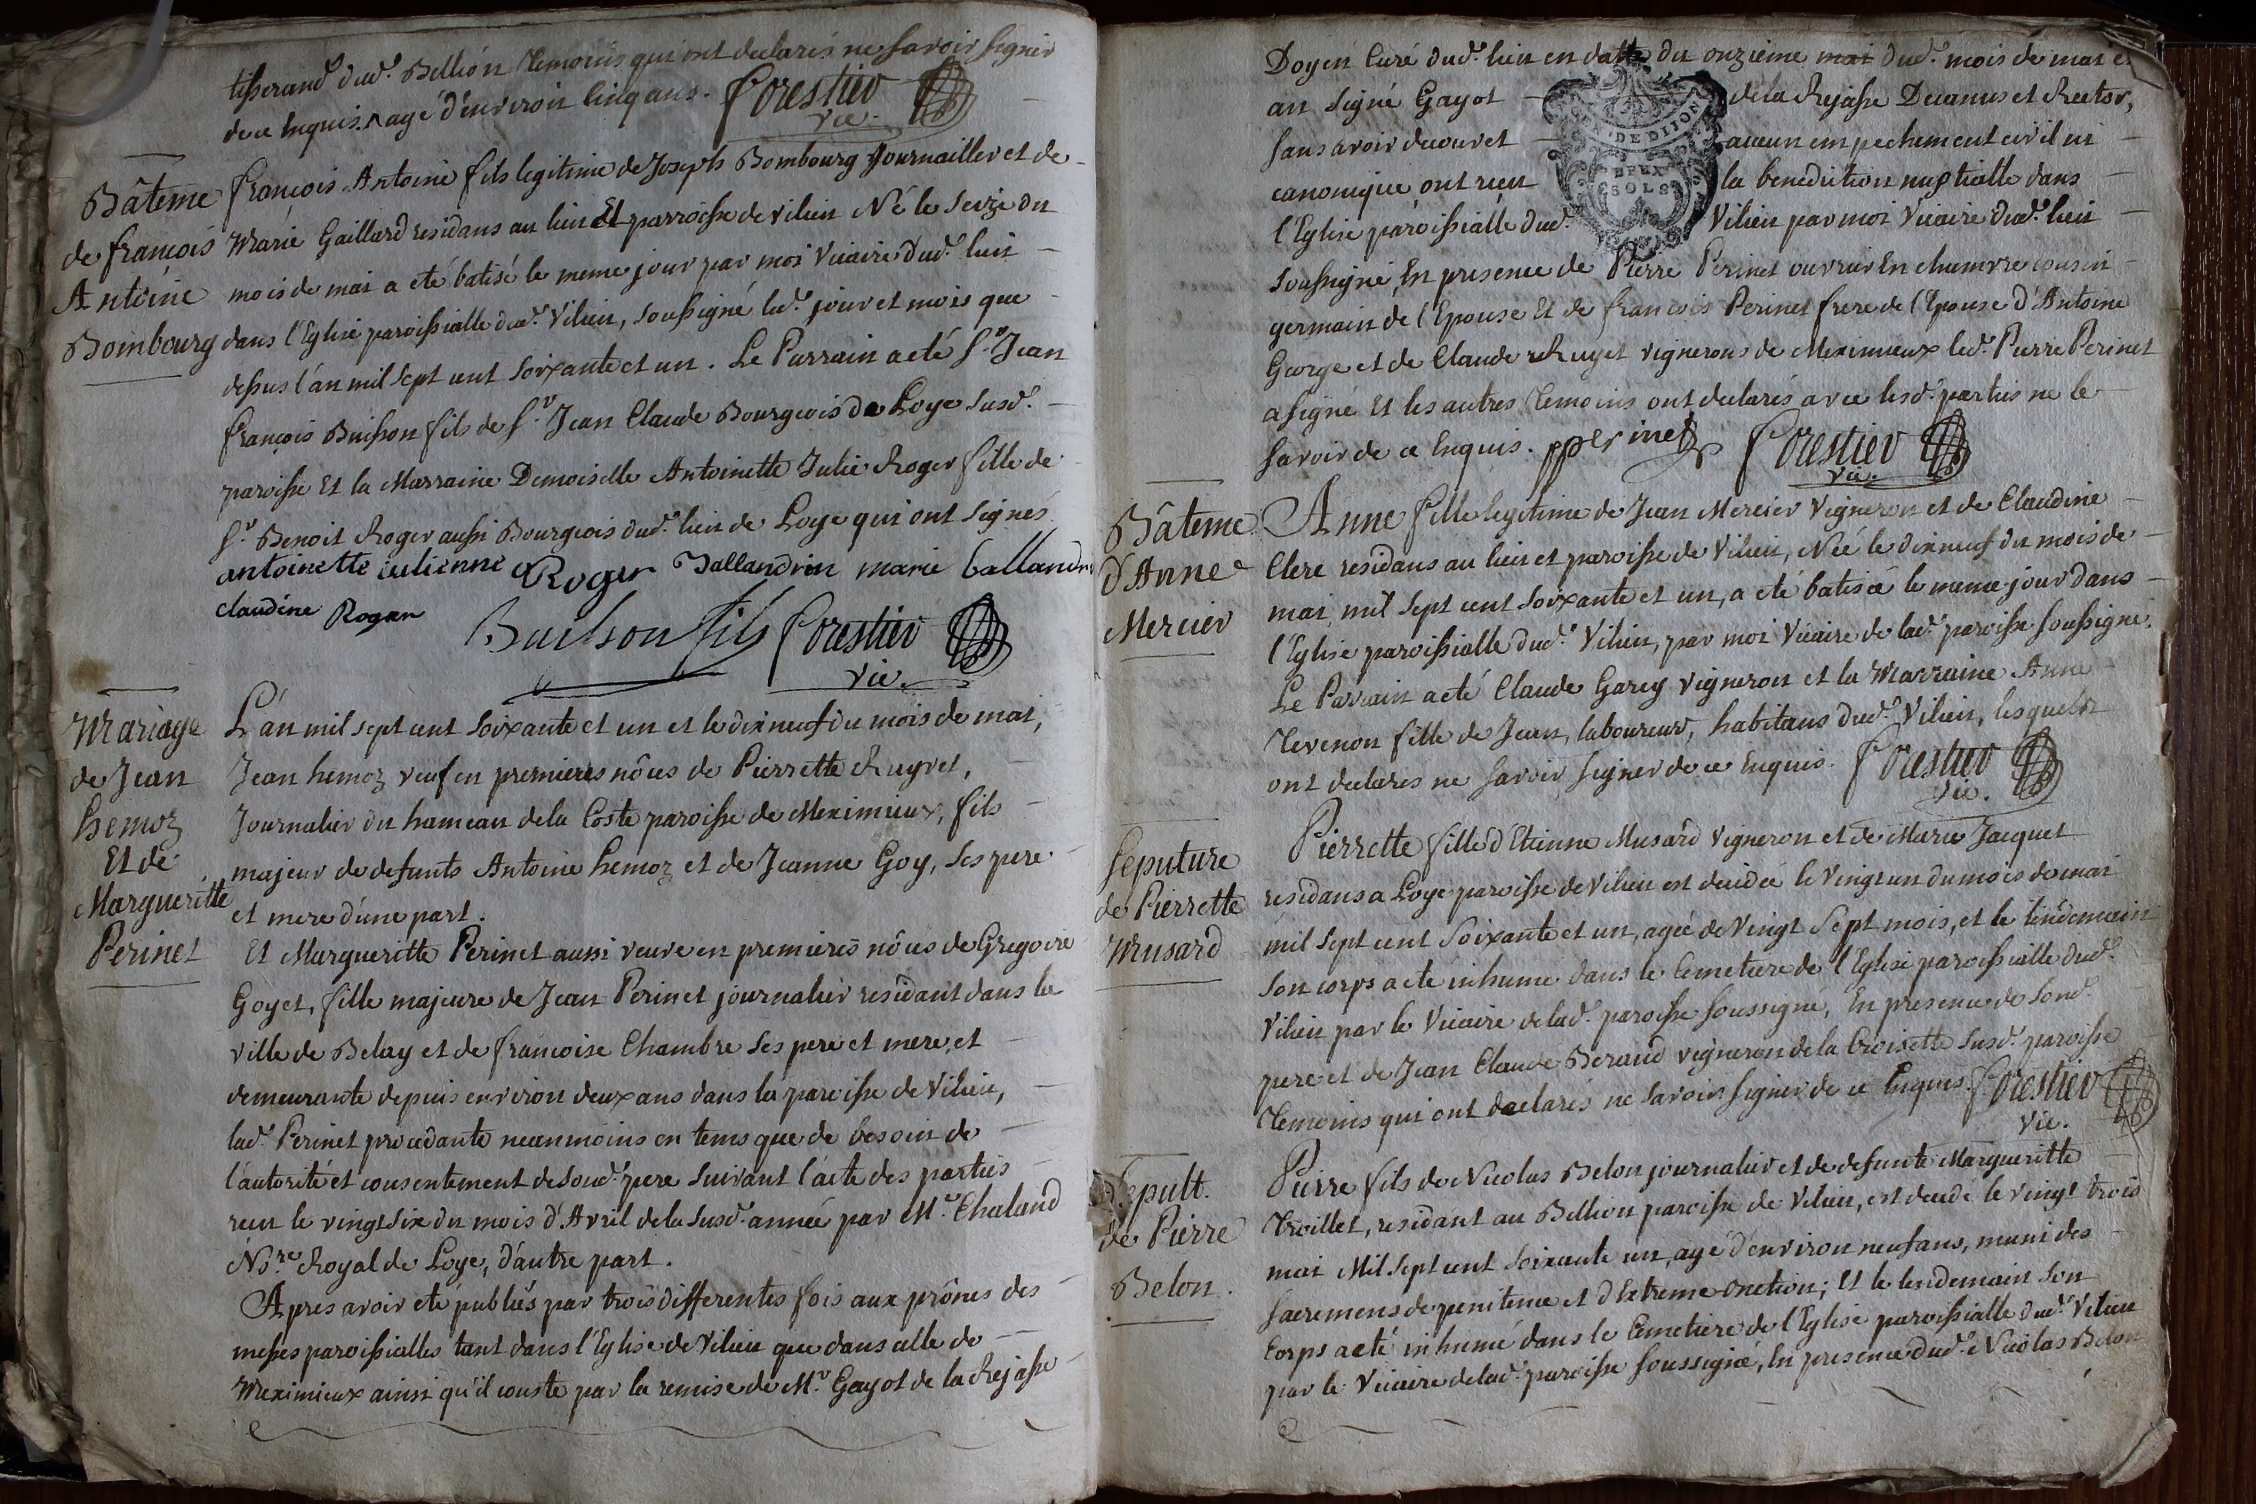 tisserand dud.t Bellion temoins qui ont declarés ne savoir signer
de ce Enquis. ^ agé d'environ Cinq ans. forestier
vic.
Bâteme
de francois
Antoine
Bombourg
francois Antoine fils legitime de Joseph Bombourg Journaillier et de
Marie Gaillard residans au lieu Et parroisse de vilieu Né le seize du
mois de mai a eté batisé le meme jour par moi Vicaire dud.t lieu
dans l'Eglise paroissialle dud.t Vilieu, soussigné lad.t jour et mois que
dessus l'an mil sept cent soixante et un. Le Parrain a eté S.r Jean
françois Buisson fils de S.r Jean Claude Bourgeois de Loye susd.t
paroisse Et la Marraine Demoiselle Antoinette Julie Roger fille de
S.r Benoit Roger aussi Bourgeois dud.t lieu de Loye qui ont signés
antoinette iulienne Roger Ballandrin marie ballandrin
claudine Roger
Buisson fils forestier
vic.
Mariage
de Jean
hemoz
Et de
Margueritte
Perinet
L'an mil sept cent soixante et un et le dix neuf du mois de mai,
Jean hemoz veuf en premieres nôces de Pierrette Ruyret,
Journalier du hameau de la Coste paroisse de Meximieux, fils
majeur de defunts Antoine hemoz et de Jeanne Goy, ses pere
et mere d'une part.
Et Margueritte Perinet aussi veuve en premieres nôces de Gregoire
Goyet, fille majeure de Jean Perinet journalier residant dans la
ville de Belay et de francoise Chambre ses pere et mere, et
demeurante depuis environ deux ans dans la paroisse de Vilieu,
lad.t Perinet procedante neanmoins en tems que de besoin de
l'autorité et consentement de soud.t pere suivant l'acte des parties
recu le vingt six du mois d'Avril de la susd.t année par M.e Chaland
No.re Royal de Loye, d'autre part.
Apres avoir eté publiés par trois differentes fois aux prônes des
messes paroissialles tant dans l'Eglise de Vilieu que dans celle de
Meximieux ainsi qu'il conste par la remise de M.r Gayot de la Rejasse
Doyen Curé dud.t lieu en datte du onzieme mai dud.t mois de mai et
an signé Gayot de la Rejasse Decanus et Rector,
sans avoir decouvet aucun empechement civil ni
canonique ont recu la benediction nuptialle dans
l'Eglise paroissialle dud.t Vilieu par moi Vicaire dud.t lieu
DE DIJON
SOLS
soussigné, En presence de Pierre Perinet ouvrier En chamvre cousin
germain de l'Epouse Et de francois Perinet frere de l'Epouse d'Antoine
George et de Claude Ruyet vignerons de Meximieux led.t Pierre Perinet
a signé Et les autres temoins ont declarés avec lesd.t parties ne le
savoir de ce Enquis. pperinet forestier
vic.
Bâteme
d'Anne
Mercier
Anne fille legitime de Jean Mercier Vigneron et de Claudine
Clere residans au lieu et paroisse de Vilieu, Née le dixneuf du mois de
mai mil sept cent soixante et un, a eté batisée le meme jour dans
l'Eglise paroissialle dud.t Vilieu, par moi Vicaire de lad.t paroisse soussigné.
Le Parrain a eté Claude Garey vigneron et la Marraine Anne
Tevenon fille de Jean, laboureur, habitans dud.t Vilieu, lesquels
ont declarés ne savoir signer de ce Enquis. forestier
vic.
Seputure
de Pierrette
Musard
Pierrette fille d'Etienne Musard vigneron et de Marie Jacquet
residans a Loye paroisse de Vilieu est decidée le vingt un du mois de mai
mil sept cent soixante et un, agée de vingt sept mois, et le lendemain
son corps a eté inhumé dans le Cemetiere de l'Eglise paroissialle dud.t
Vilieu par le Vicaire de lad.t paroisse soussigné, En presence de soud.t
pere et de Jean Claude Beraud vigneron de la Croisette susd.t paroisse
temoins qui ont declarés ne savoir signer de ce Enquis. forestier
vic.
Sepult.
de Pierre
Belon.
Pierre fils de Nicolas Belon journalier et de defunte Margueritte
Troillet, residant au Bellion paroisse de Vilieu, est decidé le vingt trois
mai Mil sept cent soixante un, agé d'environ neuf ans, muni des
sacremens de penitence et d'Extreme onction; Et le lendemain son
Corps a eté inhumé dans le Cemetiere de l'Eglise paroissialle dud.t Vilieu
par le Vicaire de lad.t paroisse soussigné, En presence dud.t Nicolas Belon